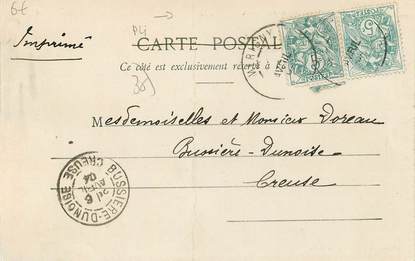 6€
Pli
Imprimé
CARTE POSTAL
Ce côté est exclusivement réservé à
5
5
AVRIL
Mesdemoiselles et Monsieur Doreau
Bussière-Dunoise
Creuse
BUSSIERE-DUNOISE
6
AVRIL
04
CREUSE